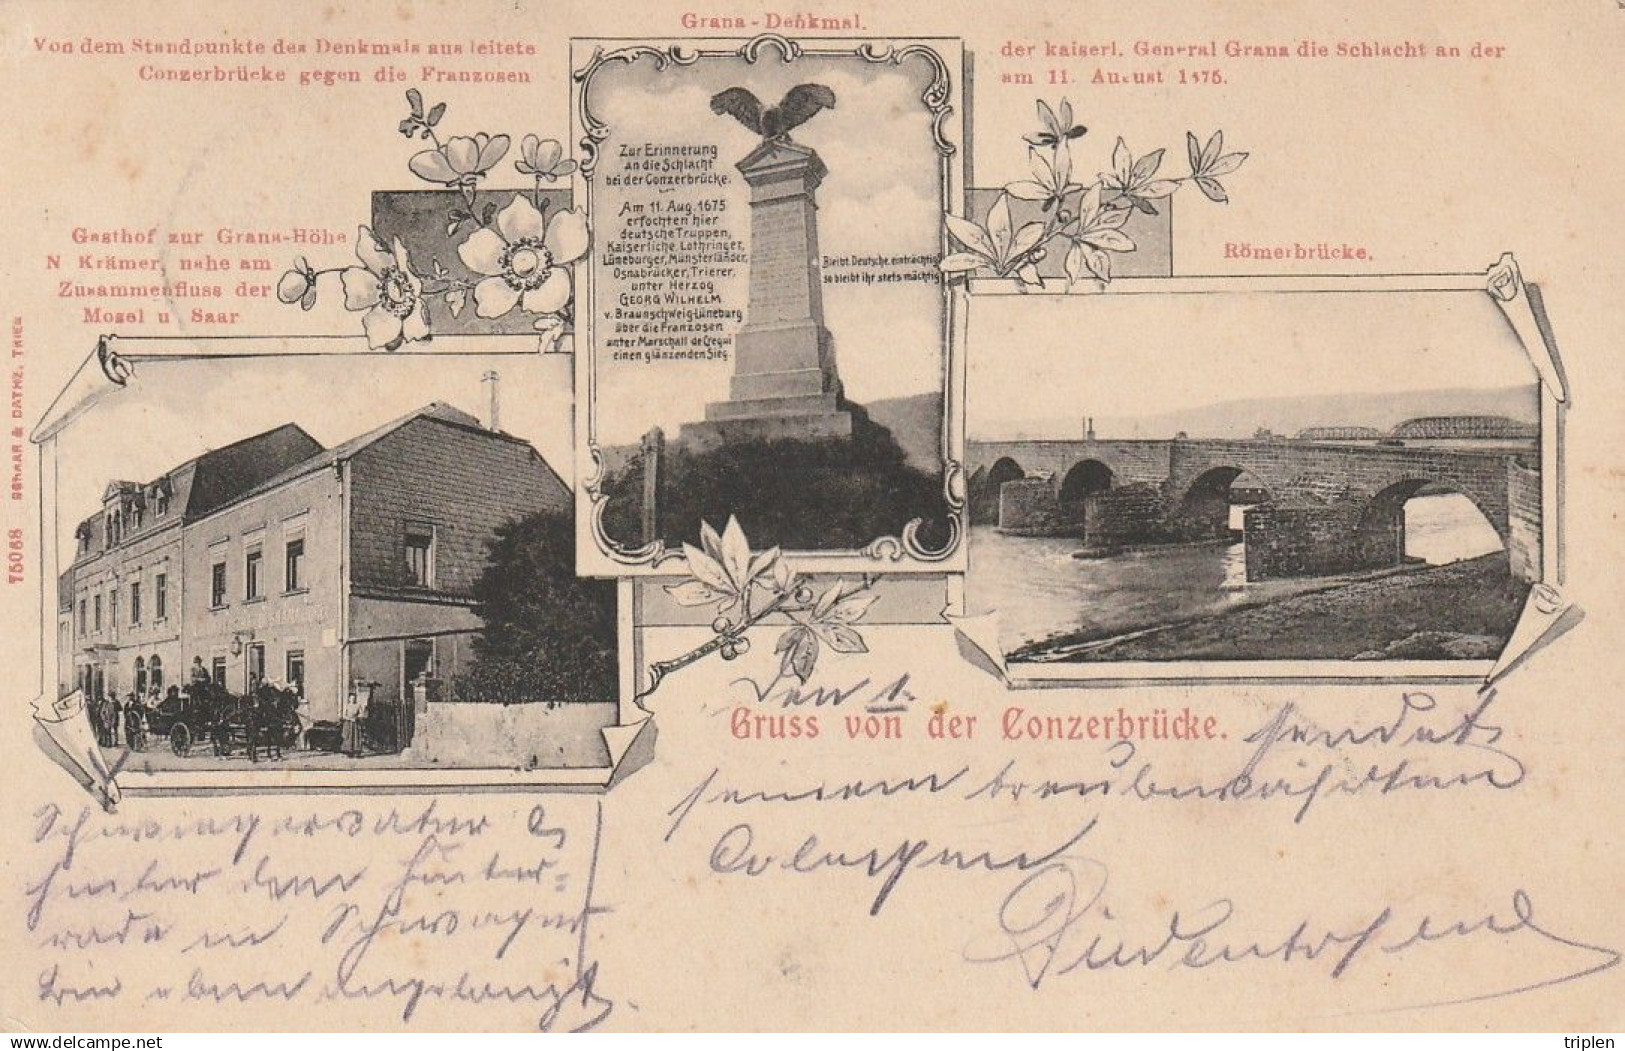 Grana-Denkmal.
Von dem Standpunkte des Denkmals aus leitete
der kaiserl. General Grana die Schlacht an der
Conzerbrücke gegen die Franzosen
am 11. August 1675.
Zur Erinnerung
an die Schlacht
bei der Conzerbrücke.
Am 11. Aug. 1675
erfochten hier
deutsche Truppen,
Kaiserliche, Lothringer,
Lüneburger, Münsterländer,
Osnabrücker, Trierer,
unter Herzog
GEORG WILHELM
v. Braunschweig-Lüneburg
über die Franzosen
unter Marschall de Crequi
einen glänzenden Sieg.
Bleibt Deutsche, einträchtig
so bleibt ihr stets mächtig
Gasthof zur Grana-Höhe
N Krämer, nahe am
Zusammenfluss der
Mosel u Saar
Römerbrücke.
75088 SCHAAR & DATHE, TRIER
Den 1.
Gruss von der Conzerbrücke.
sendet
seinem treubewährten
Collegen
Schwiegervater
hinter dem Hinter=
rade
bin oben angelangt.
triplen
delcampe.net